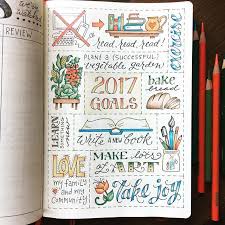 REVIEW
read, read, read!
exercise
PLANT A (SUCCESSFUL)
vegetable garden!
2017
GOALS
bake
bread
LEARN
Write a new book
LOVE
my family
and my
community
MAKE lots
of ART
Make joy